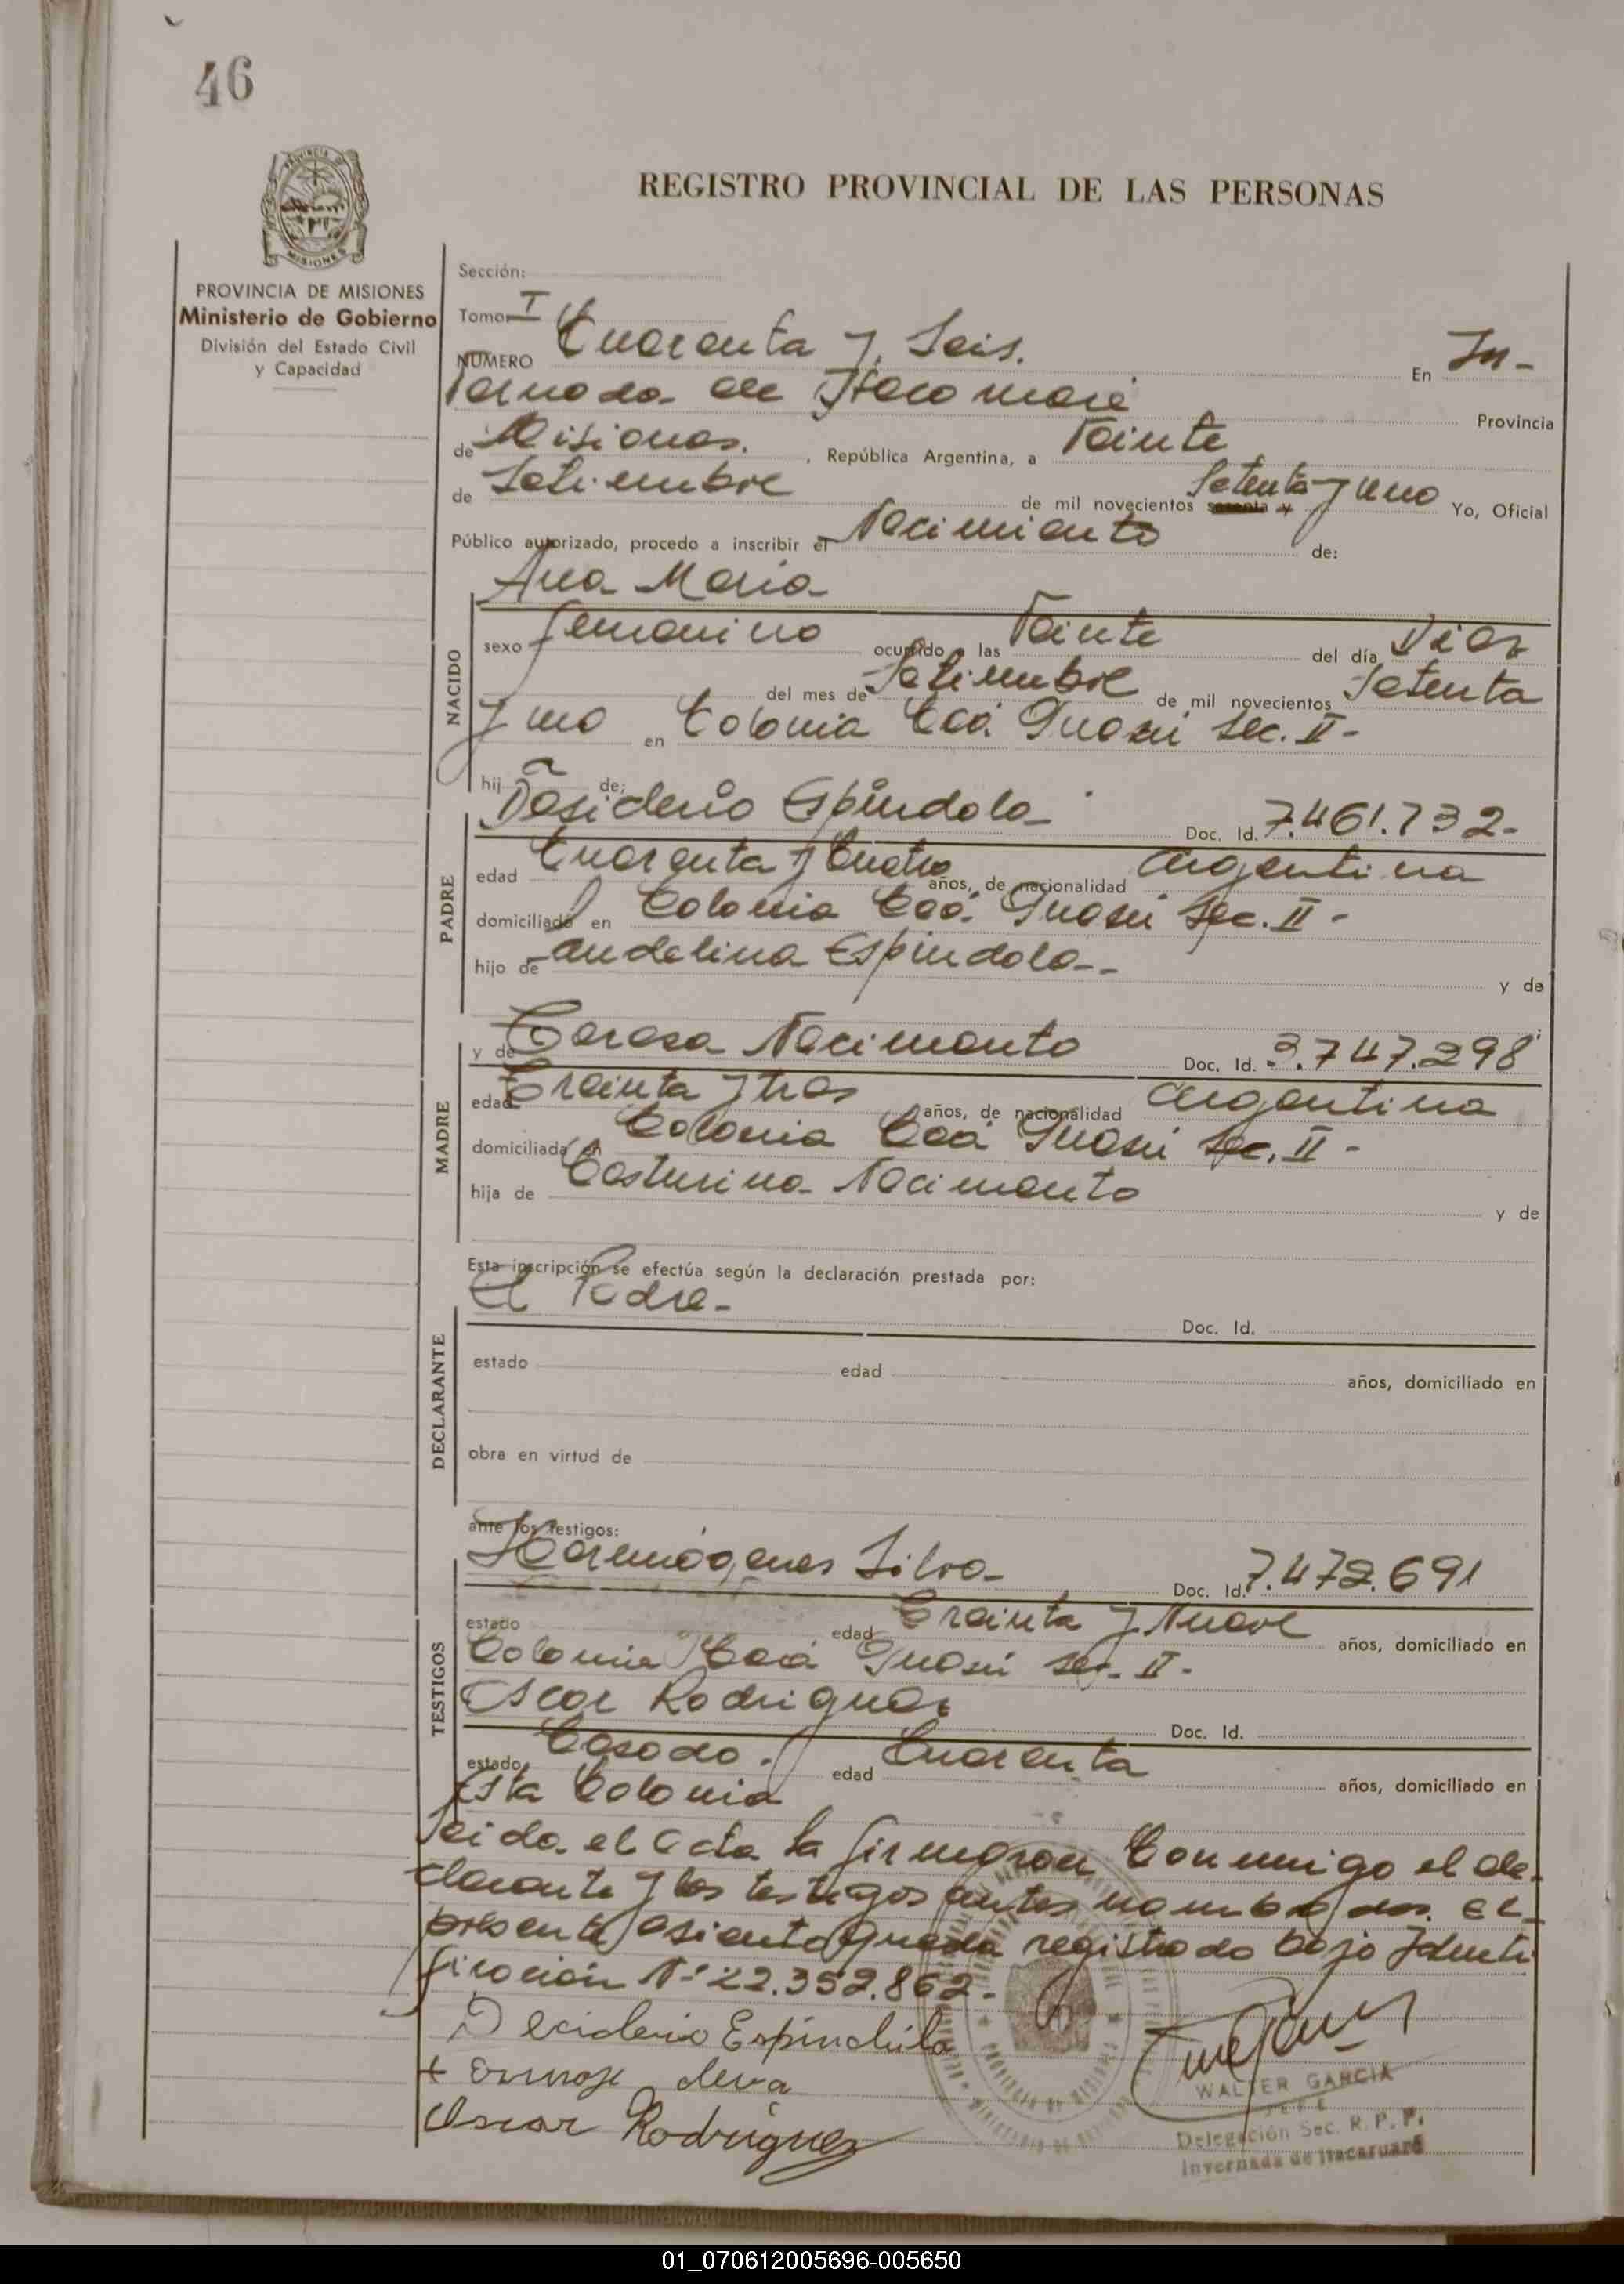 46
REGISTRO PROVINCIAL DE LAS PERSONAS
PROVINCIA DE MISIONES
Ministerio de Gobierno
División del Estado Civil
y Capacidad
Sección:
Tomo I
NUMERO Cuarenta y Seis. En In-
vernada de Itacaruaré Provincia
de Misiones. , República Argentina, a Veinte
de Setiembre de mil novecientos sesenta y Setenta y uno Yo, Oficial
Público autorizado, procedo a inscribir el Nacimiento de:
Ana Maria
NACIDO
sexo femenino ocurrido a las Veinte del día Diez
del mes de Setiembre de mil novecientos Setenta
y uno en Colonia Caá Guasú Sec. II-
hij a de:
PADRE
Desiderio Espíndola- Doc. Id. 7.461.732-
edad Cuarenta y Cuatro años, de nacionalidad Argentina
domiciliado en Colonia Caá Guasú Sec. II-
hijo de Espindola- y de
MADRE
y de Teresa Nacimento Doc. Id. 3.747.298
edad Treinta y tres años, de nacionalidad Argentina
domiciliada en Colonia Caá Guasú Sec. II-
hija de Nacimento y de
Esta inscripción se efectúa según la declaración prestada por:
DECLARANTE
El Padre- Doc. Id.
estado edad años, domiciliado en
obra en virtud de
ante los testigos:
TESTIGOS
Hermógenes Silva- Doc. Id. 7.472.691
estado edad Treinta y Nueve años, domiciliado en
Colonia Caá Guasú Sec. II-
Oscar Rodriguez Doc. Id.
estado Casado. edad Cuarenta años, domiciliado en
Esta Colonia
Leida el Acta la firmaron Conmigo el de-
clarante y los testigos antes nombrados. El
presente asiento queda registrado bajo Identi
ficación Nº 22.352.862-
Deciderio
Oscar Rodriguez
WALTER GARCIA
JEFE
Delegación Sec. R. P. P.
Invernada de Itacaruaré
01_070612005696-005650